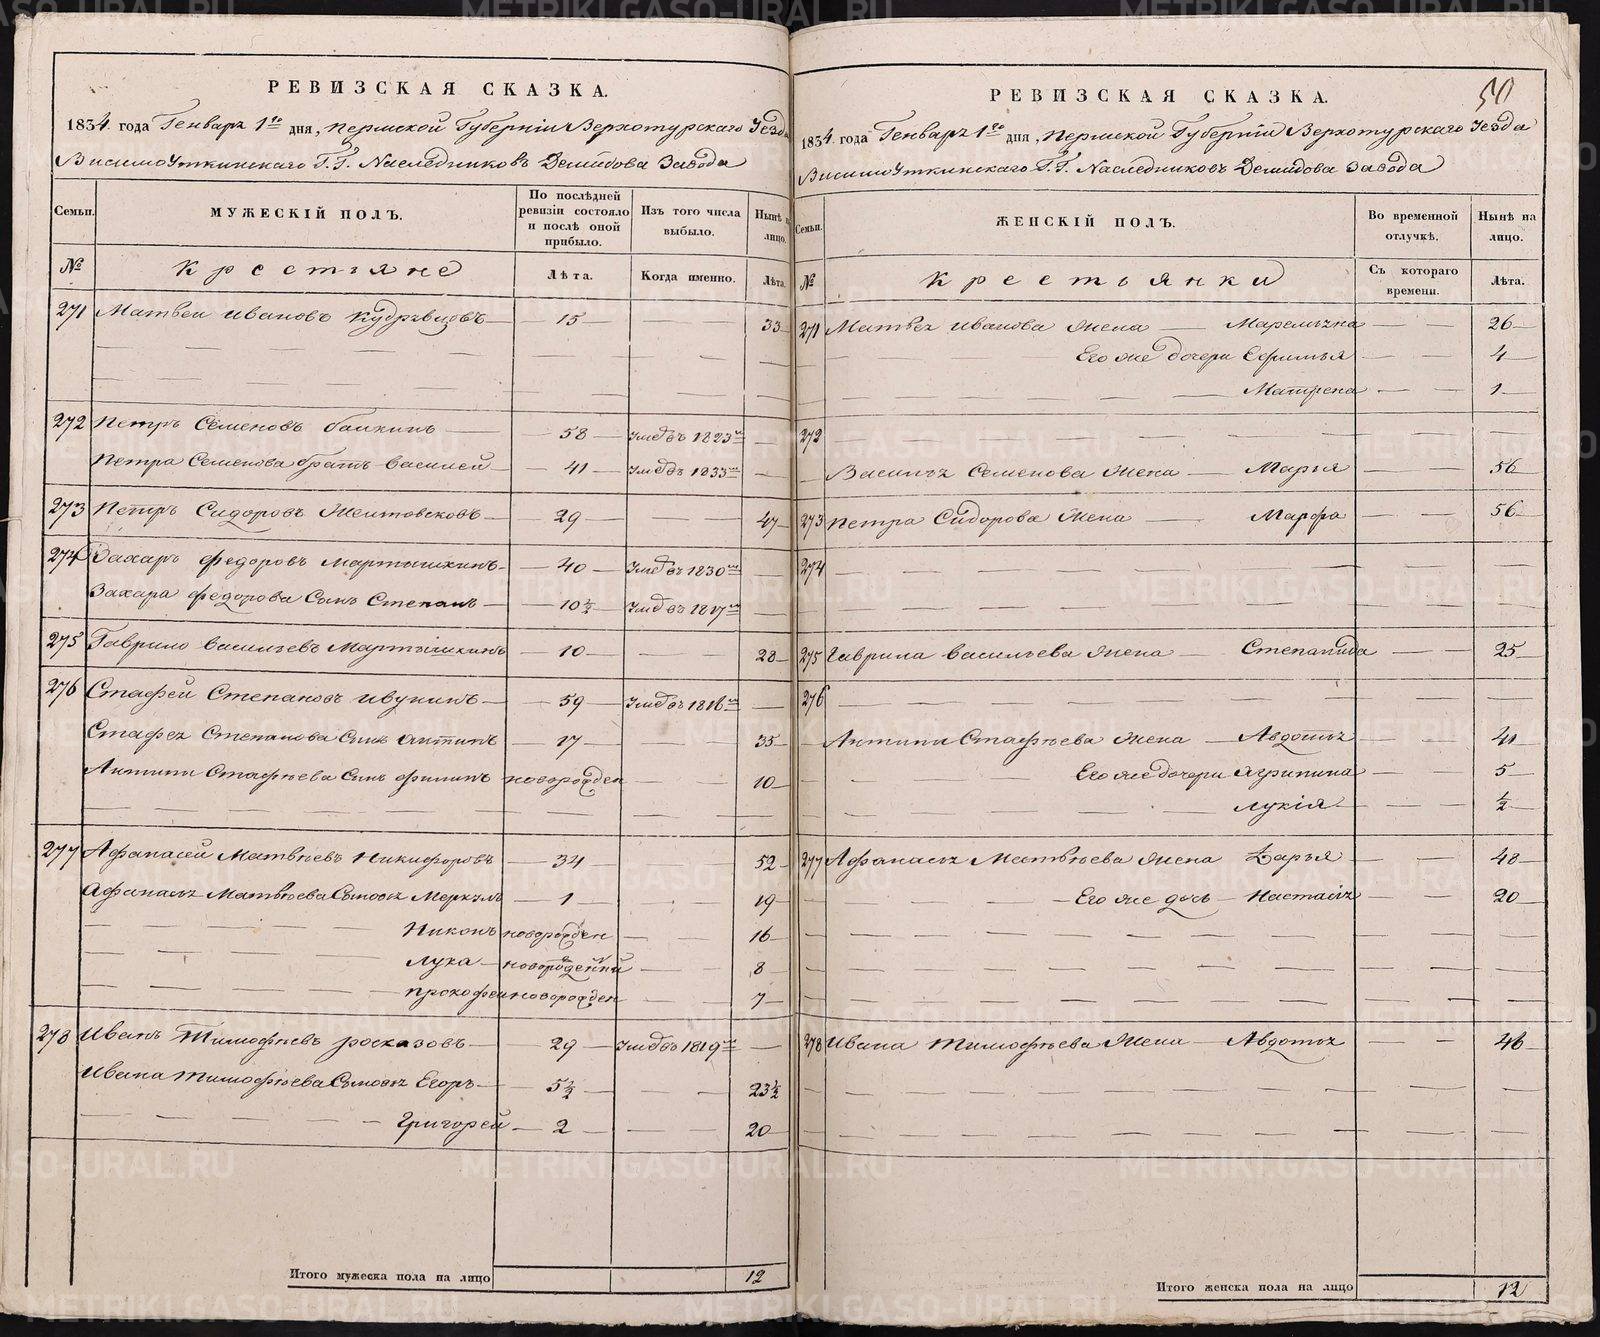 РЕВИЗСКАЯ СКАЗКА.
1834. года Генваря 1го дня, Пермской Губерніи Верхотурскаго Уезда
ВисимоУткинскаго Г.Г. Наследниковъ Демидова Завода
Семьи. МУЖЕСКІЙ ПОЛЪ. По послѣдней ревизіи состояло и послѣ оной прибыло. Изъ того числа выбыло. Нынѣ на лицо.
№ Крестьяне Лѣта. Когда именно. Лѣта.
271 Матвеи Ивановъ 15 — — 33
272 Петръ Семеновъ 58 — 1823 —
Петра Семенова братъ Василей — 41 — 1833 —
273 Петръ Сидоровъ 29 — — 47
274 Захаръ Федоровъ Мартышкинъ — 40 — 1830 —
Захара Федорова Сынъ Степанъ — 10½ — 1817 —
275 Гаврило Васильевъ Мартышкинъ — 10 — — 28
276 Стафей Степановъ Ивукинъ — 59 — 1816 —
Стафея Степанова Сынъ Антипъ — 17 — — 35
Антипа Стафѣева Сынъ Филипъ новорожден — — 10
277 Афанасей Матвѣевъ Никифоровъ — 34 — — 52
Афанасья Матвѣева Сыновья Меркулъ — 1 — — 19
Никонъ новорожден — — 16
Лука — новорожденный — — 8
Прокофеи новорожден — — 7
278 Иванъ Тимофѣевъ Росказовъ — 29 — 1819 —
Ивана Тимофѣева Сыновья Егоръ — 5½ — — 23½
Григорей — 2 — — 20
Итого мужеска пола на лицо 12
50
РЕВИЗСКАЯ СКАЗКА.
1834. года Генваря 1го дня, Пермской Губерніи Верхотурскаго Уезда
ВисимоУткинскаго Г.Г. Наследниковъ Демидова Завода
Семьи. ЖЕНСКІЙ ПОЛЪ. Во временной отлучкѣ. Нынѣ на лицо.
№ Крестьянки Съ котораго времени. Лѣта.
271 Матвея Иванова Жена — Маремьяна — — 26
Его же дочери Ефимья — — 4
Матрена — — 1
272
Василья Семенова Жена — Марья — — 56
273 Петра Сидорова Жена — Марфа — — 56
274
275 Гаврила Васильева Жена — Степанида — — 25
276
Антипа Стафѣева Жена — Авдотья — — 41
Его же дочери Агрипина — — 5
Лукія — — ½
277 Афанасья Матвѣева Жена Дарья — — 48
Его же дочь — Настасья — — 20
278 Ивана Тимофѣева Жена — Авдотья — — 46
Итого женска пола на лицо 12
METRIKI.GASO-URAL.RU